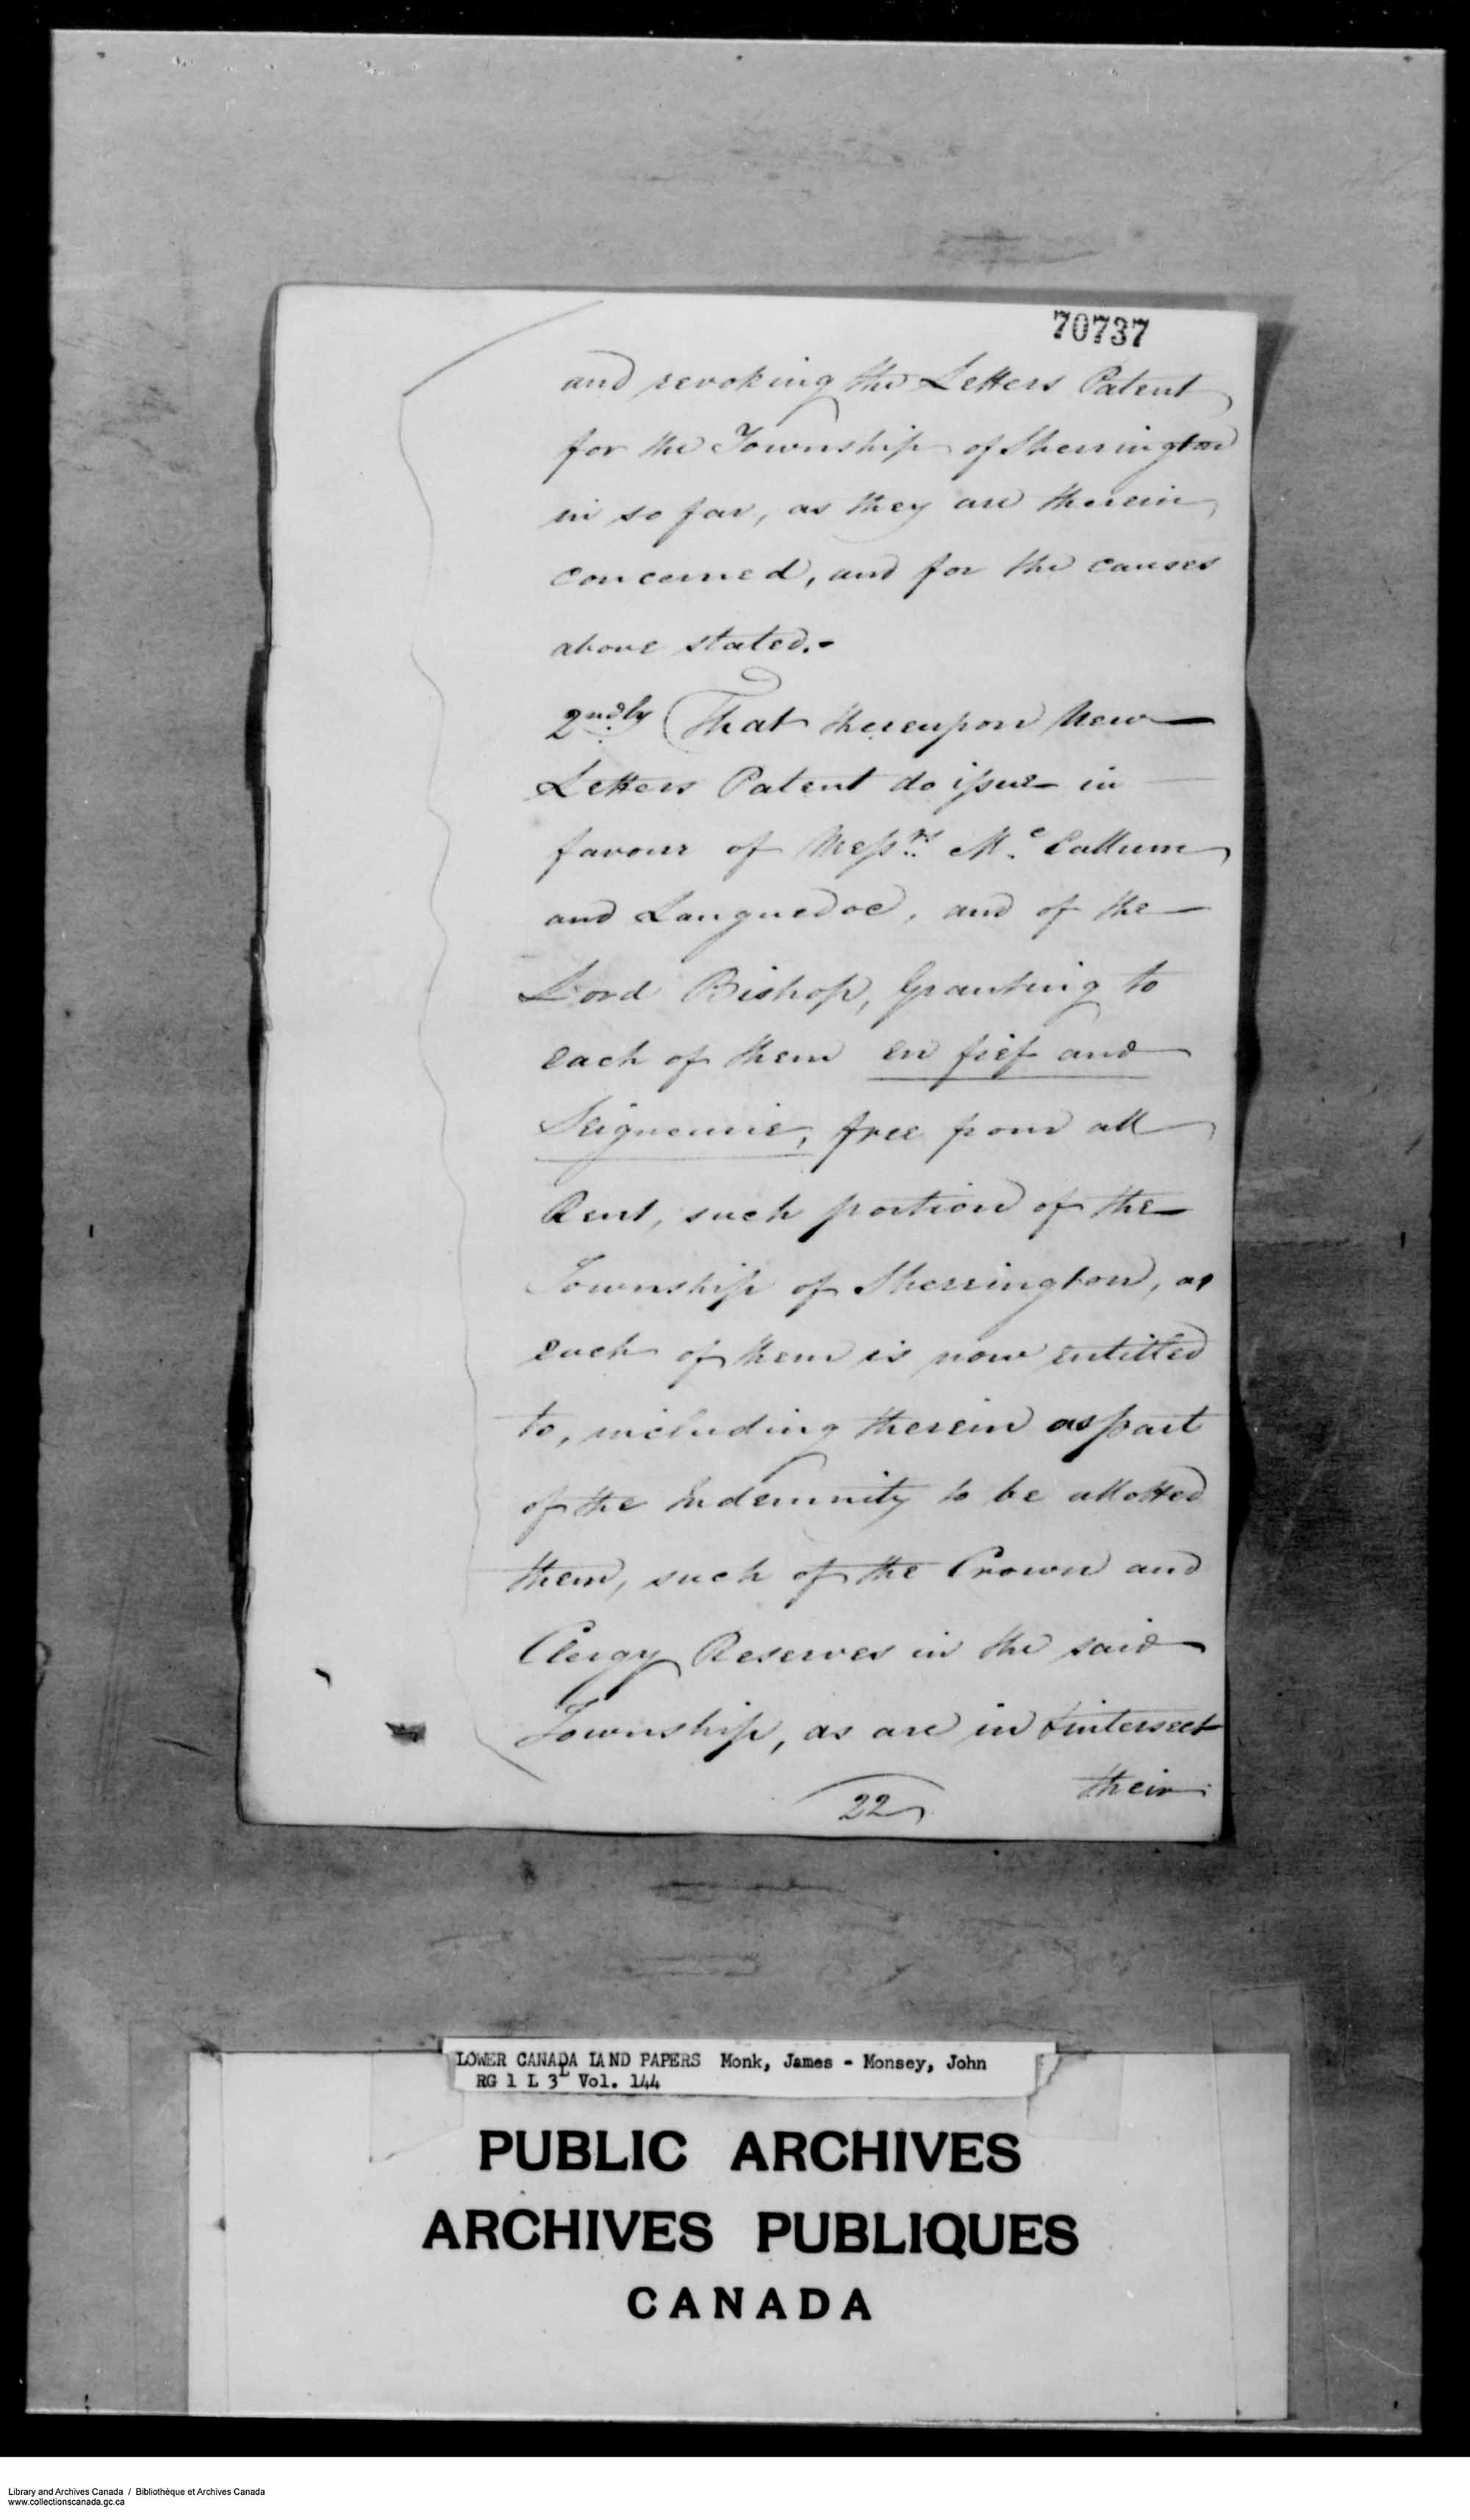 70737
and revoking the Letters Patent
for the Township of Sherrington
in so far, as they are therein
concerned, and for the causes
above stated.-
2ndly That thereupon New
Letters Patent do issue in
favour of Messrs. Mc.Callum
and Languedoc, and of the
Lord Bishop, Granting to
each of them en fief and
Seigneurie, free from all
Rent, such portion of the
Township of Sherrington, as
each of them is now entitled
to, including therein as part
of the Indemnity to be allotted
them, such of the Crown and
Clergy Reserves in the said
Township, as are in & intersect
their
22
LOWER CANADA LAND PAPERS Monk, James - Monsey, John
RG 1 L 3L Vol. 144
PUBLIC ARCHIVES
ARCHIVES PUBLIQUES
CANADA
Library and Archives Canada / Bibliothèque et Archives Canada
www.collectionscanada.gc.ca